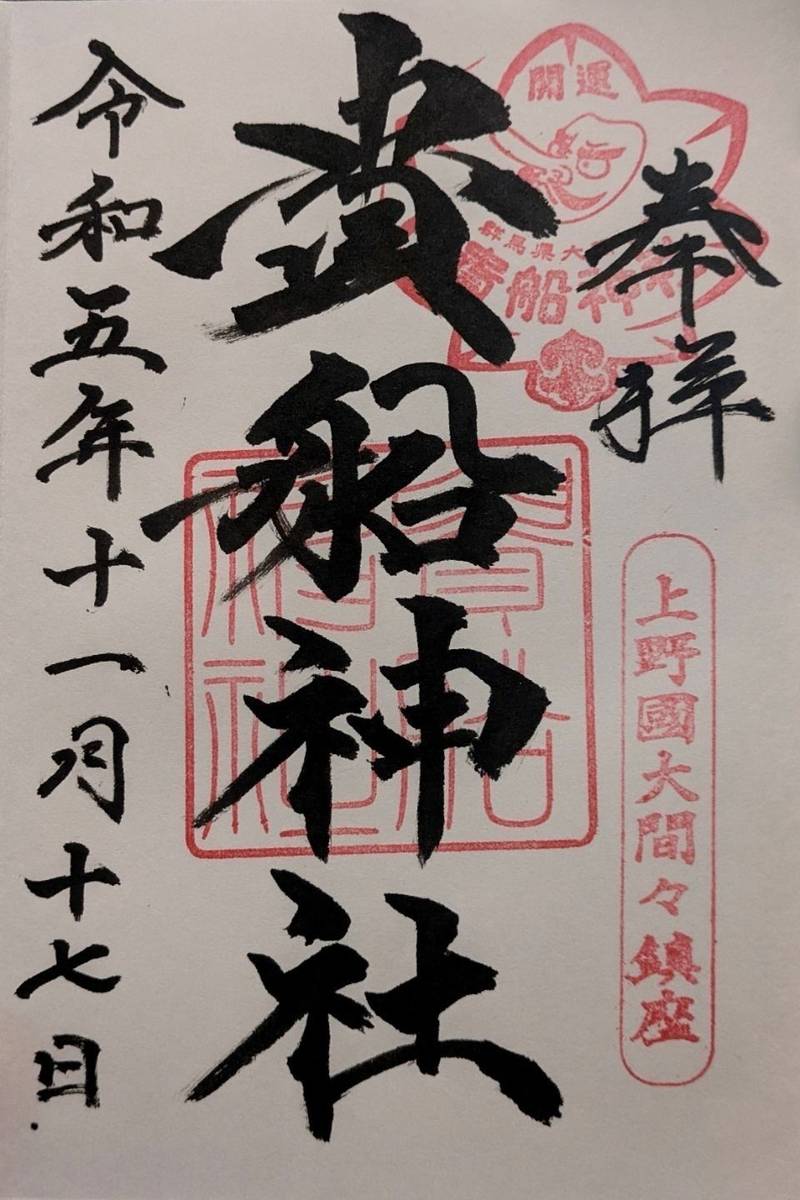 奉拝
開運
群馬県大
貴船神社
上野國大間々鎮座
貴船神社
貴船神社
令和五年十一月十七日